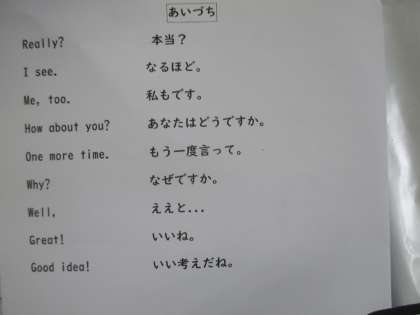 あいづち
Really? 本当？
I see. なるほど。
Me, too. 私もです。
How about you? あなたはどうですか。
One more time. もう一度言って。
Why? なぜですか。
Well, ええと...
Great! いいね。
Good idea! いい考えだね。